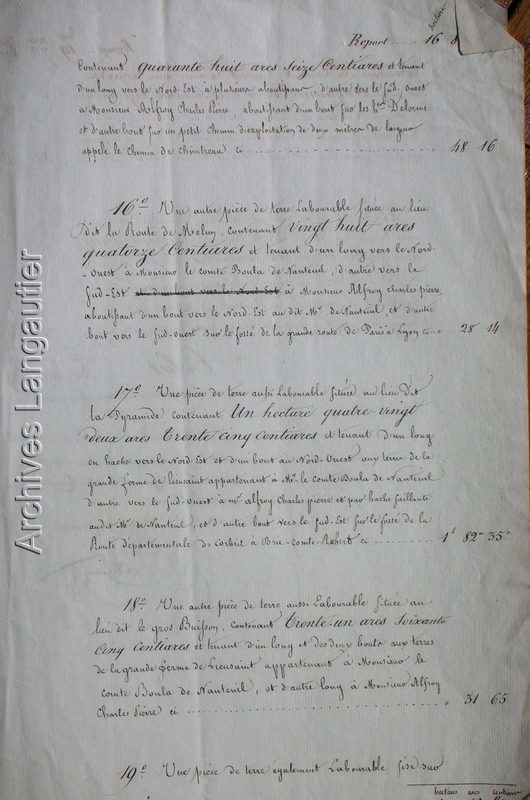 hectares
Report ..... 16
Contenant quarante huit ares Seize Centiares et tenant
d'un long vers le Nord-Est à plusieurs aboutissans, d'autre vers le Sud-Ouest
à Monsieur Alfroy Charles Pierre aboutissant d'un bout sur les Delorme
et d'autre bout sur un petit Chemin d'exploitation de deux mètres de largeur
appelé le Chemin de ci ..... 48 16
16° Une autre pièce de terre Labourable située au lieu
dit la Route de Melun, contenant vingt huit ares
quatorze Centiares et tenant d'un long vers le Nord-
Ouest à Monsieur le comte Boula de Nanteuil, d'autre vers le
Sud-Est et d'un bout vers le Nord-Est à Monsieur Alfroy Charles pierre
aboutissant d'un bout vers le Nord-Est au dit Mr. de Nanteuil, et d'autre
bout vers le Sud-Ouest sur le fossé de la grande route de Paris à Lyon ci .. 28 14
17° Une pièce de terre aussi Labourable située au lieu Dit
la Pyramide contenant Un hectare quatre-vingt
deux ares Trente Cinq Centiares et tenant d'un long
en hache vers le Nord-Est et d'un bout au Nord-Ouest aux terres de la
grande ferme de Lieusaint appartenant à Mr. le Comte Boula de Nanteuil
d'autre vers le Sud-Ouest à mr. alfroy Charles pierre et par hache saillante
audit Mr. de Nanteuil, et d'autre bout vers le Sud-Est sur le fossé de la
Route départementale de Corbeil à Brie-Comte-Robert ci ..... 1 82 35
18° Une autre pièce de terre aussi Labourable située au
lieu dit le gros Buisson, contenant Trente-un ares Soixante
Cinq Centiares et tenant d'un long et des deux bouts aux terres
de la grande ferme de Lieusaint appartenant à Monsieur le
comte Boula de Nanteuil, et d'autre long à Monsieur Alfroy
Charles Pierre ci ..... 31 65
19° Une pièce de terre également Labourable sise sur
hectares ares centiares
Archives Langautier